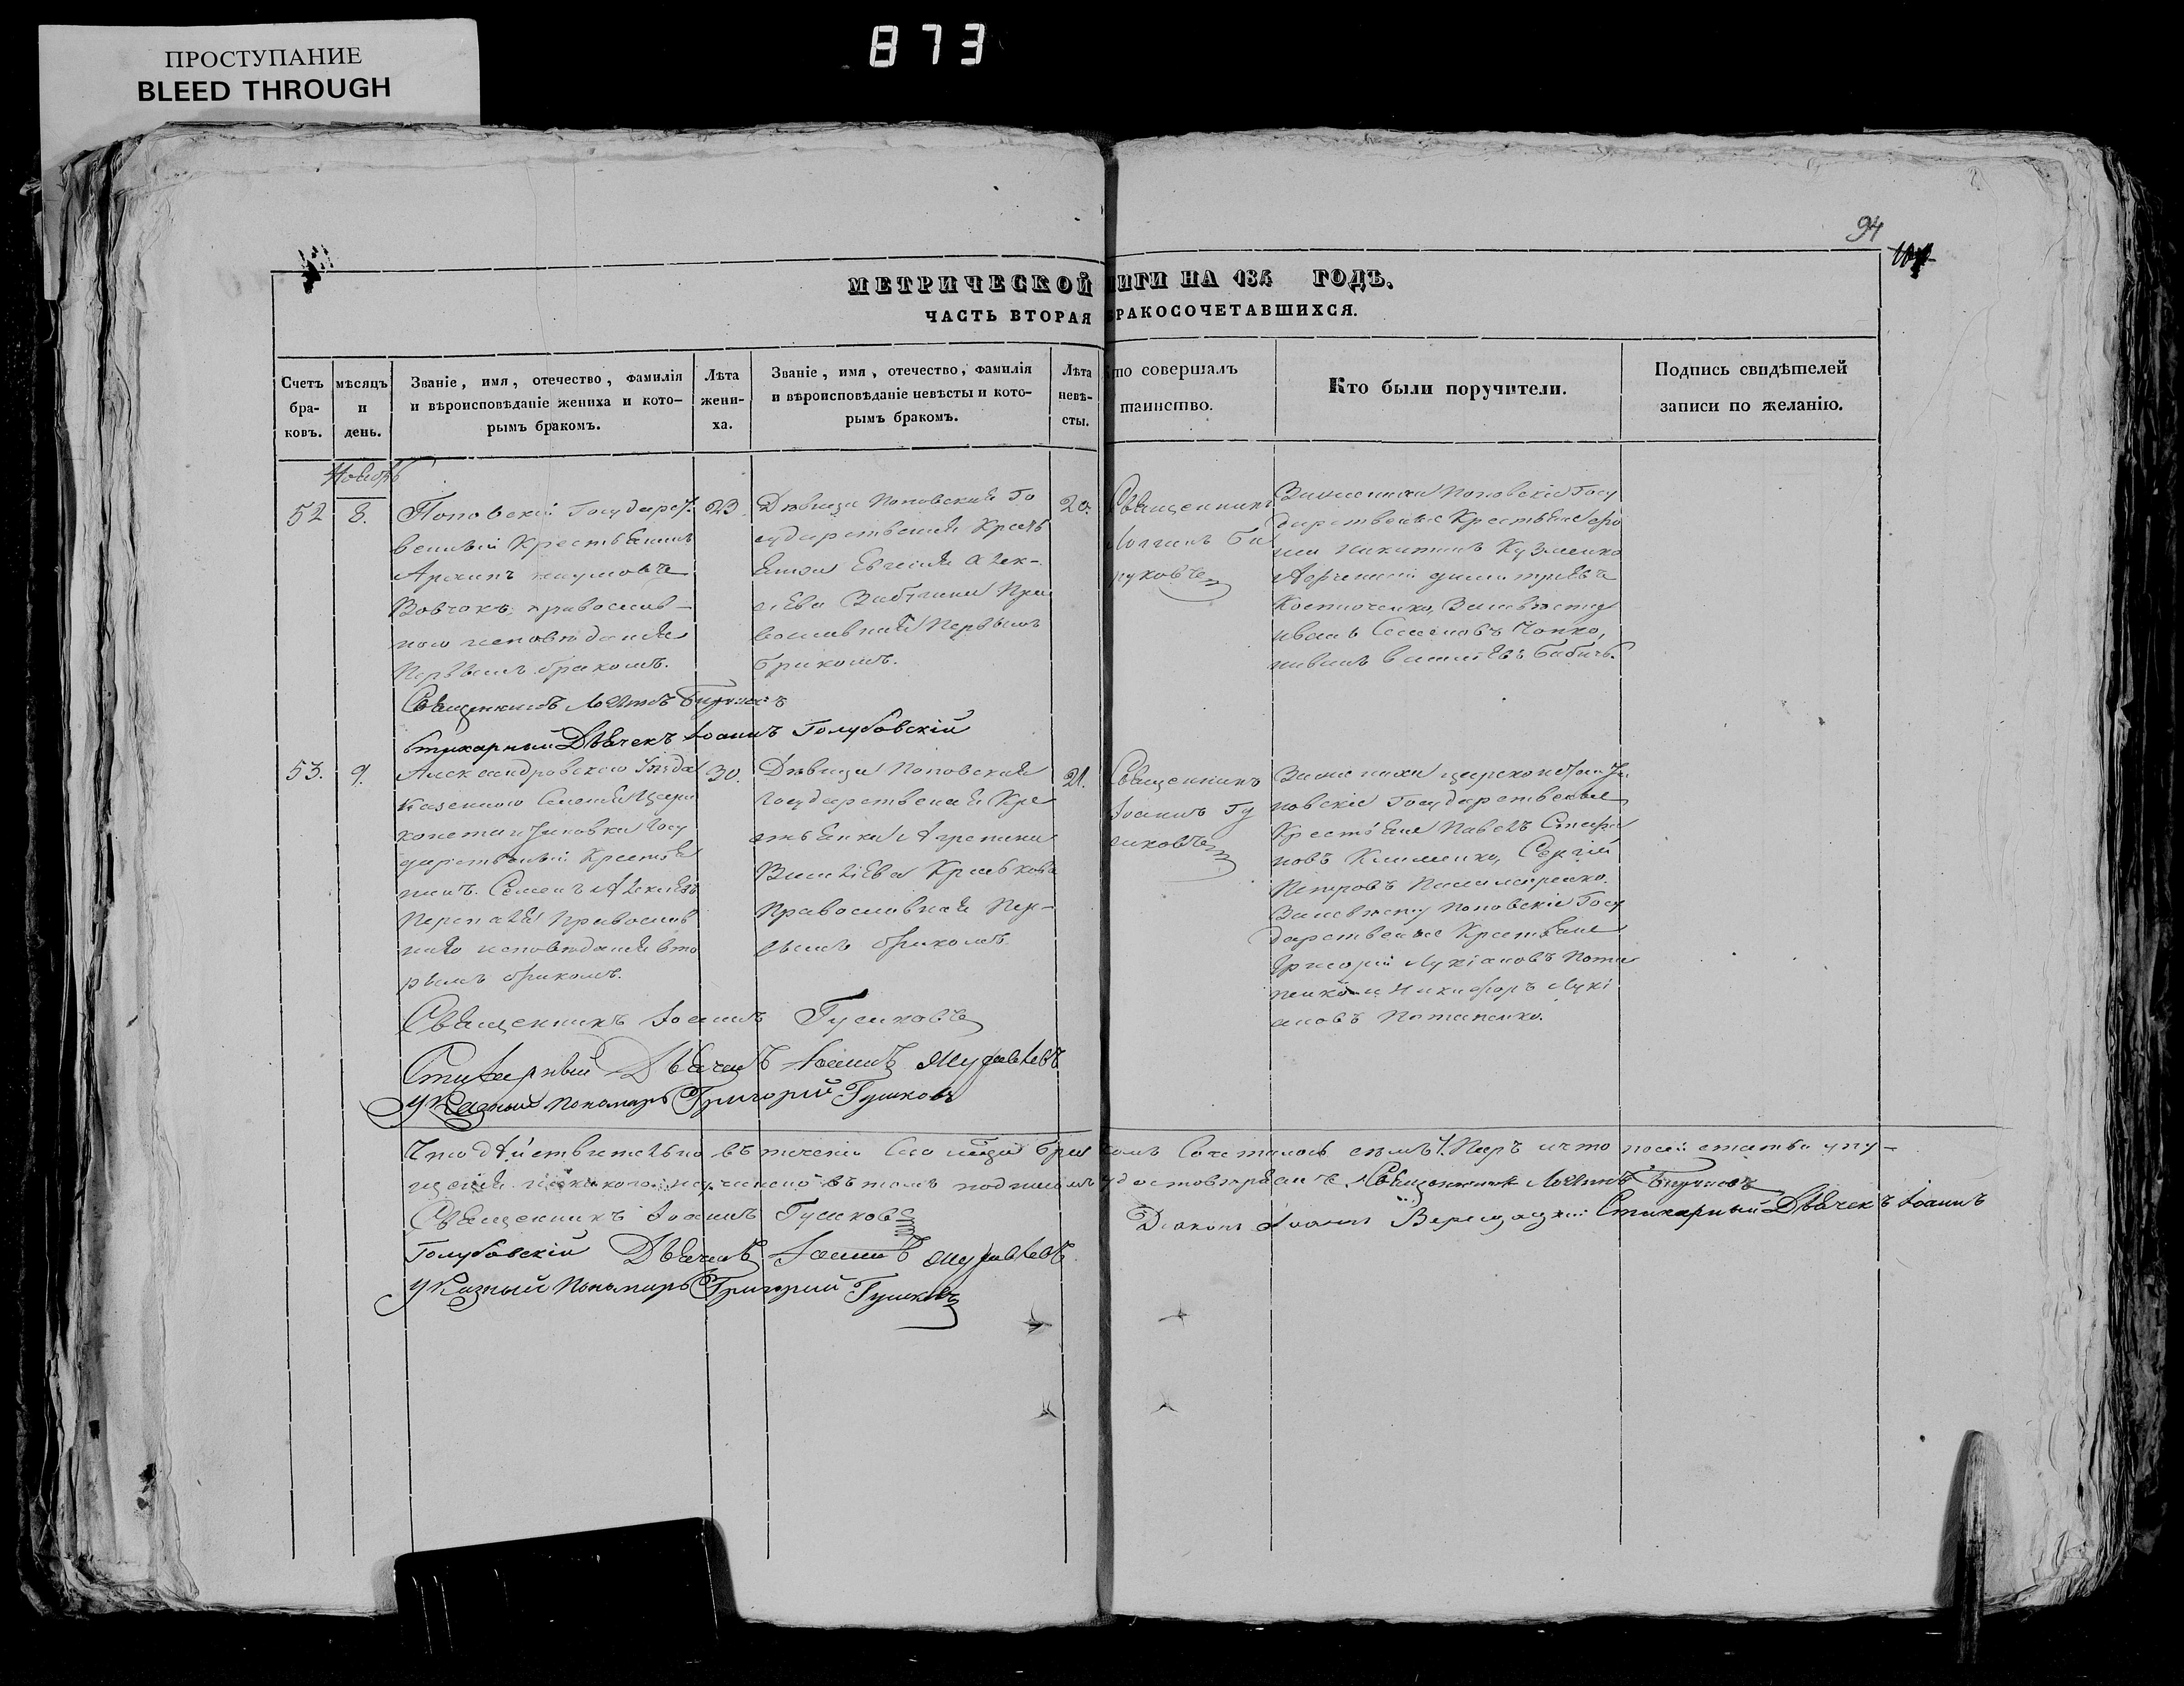 ПРОСТУПАНИЕ
BLEED THROUGH
873
94
МЕТРИЧЕСКОЙ ИГИ НА 184 ГОДЪ.
ЧАСТЬ ВТОРАЯ БРАКОСОЧЕТАВШИХСЯ.
Счетъ бра-ковъ.
мѣсяцъ и день.
Званіе, имя, отечество, фамилія
и вѣроисповѣданіе жениха и кото-
рымъ бракомъ.
Лѣта жени-ха.
Званіе, имя, отечество, фамилія
и вѣроисповѣданіе невѣсты и кото-
рымъ бракомъ.
Лѣта невѣ-сты.
то совершалъ
таинство.
Кто были поручители.
Подпись свидѣтелей
записи по желанію.
Ноябрь
52
8.
Поповскій Государст
венный Крестьянинъ
Архипъ Наумовъ
Вовчокъ православ-
ного исповѣданія
Первымъ бракомъ.
23.
Дѣвица Поповская Го
сударственная Кресть
янка Евгенія Алек-
сѣева Пра
вославная Первымъ
бракомъ.
20.
Священникъ
Логинъ Би
руковъ
Поповскіе Госу
дарственные Крестьяне
Никитинъ Кузменко
Димитріевъ
Костюченко, По невѣстѣ
Иванъ Семеновъ Чопко,
Бабичъ.
Священникъ Логинъ Бируковъ
Стихарный Дьячекъ Іоаннъ Голубовскій
53.
9.
Александровского Уѣзда
Казенного Селенія Царе
константиновки Госу
дарственный Крестья
нинъ Семенъ Алексѣевъ
Православ
ного исповѣданія вто
рымъ бракомъ.
30.
Дѣвица Поповская
Государственная Кре
стьянка Агрипина
Василіева
Православная Пер-
вымъ бракомъ.
21.
Священникъ
Іоаннъ Гу
сиковъ
Цареконстанти
новскіе Государственные
Крестьяне Павелъ Стефа
новъ Клименко, Сергій
Петровъ
По невѣстѣ Поповскіе Госу
дарственные Крестьяне
Григорій Лукіановъ Пота
пенко и Никифоръ Лукі
ановъ Потапенко.
Священникъ Іоаннъ Гусиковъ
Стихарный Дьячекъ Іоаннъ
Указный Пономарь Григорій Гушковъ
Что дѣйствительно въ теченіи сего бракомъ Сочеталось семь Паръ и что по сей статьи упу-
щенія никакого не учинено въ томъ подписомъ удостовѣряемъ Священникъ Логинъ Бируковъ
Священникъ Іоаннъ Гусиковъ Діаконъ Іоаннъ Стихарный Дьячекъ Іоаннъ
Голубовскій Дьячекъ Іоаннъ
Указный Пономарь Григорій Гушковъ